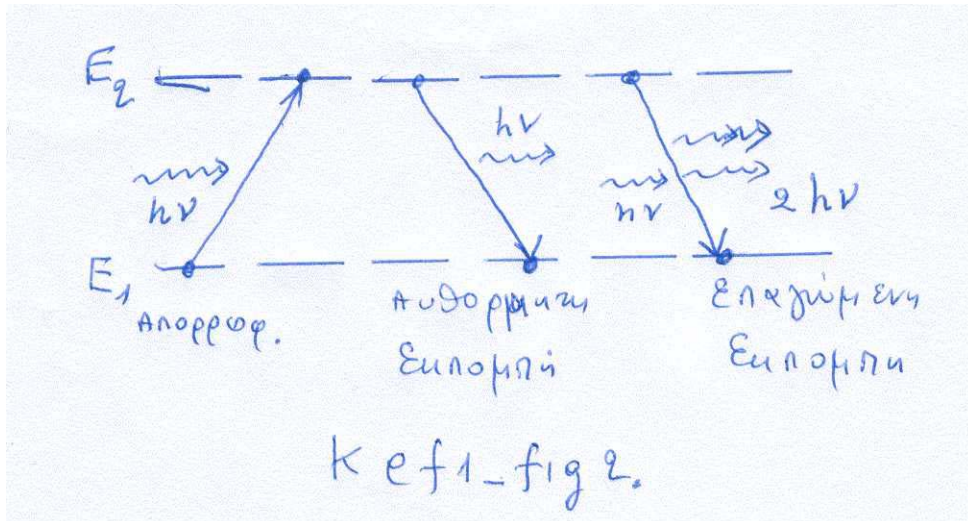 E2
hν
hν
hν
2 hν
E1
Απορροφ.
Αυθόρμητη
Εκπομπή
Επαγώμενη
Εκπομπη
Kef1_fig2.